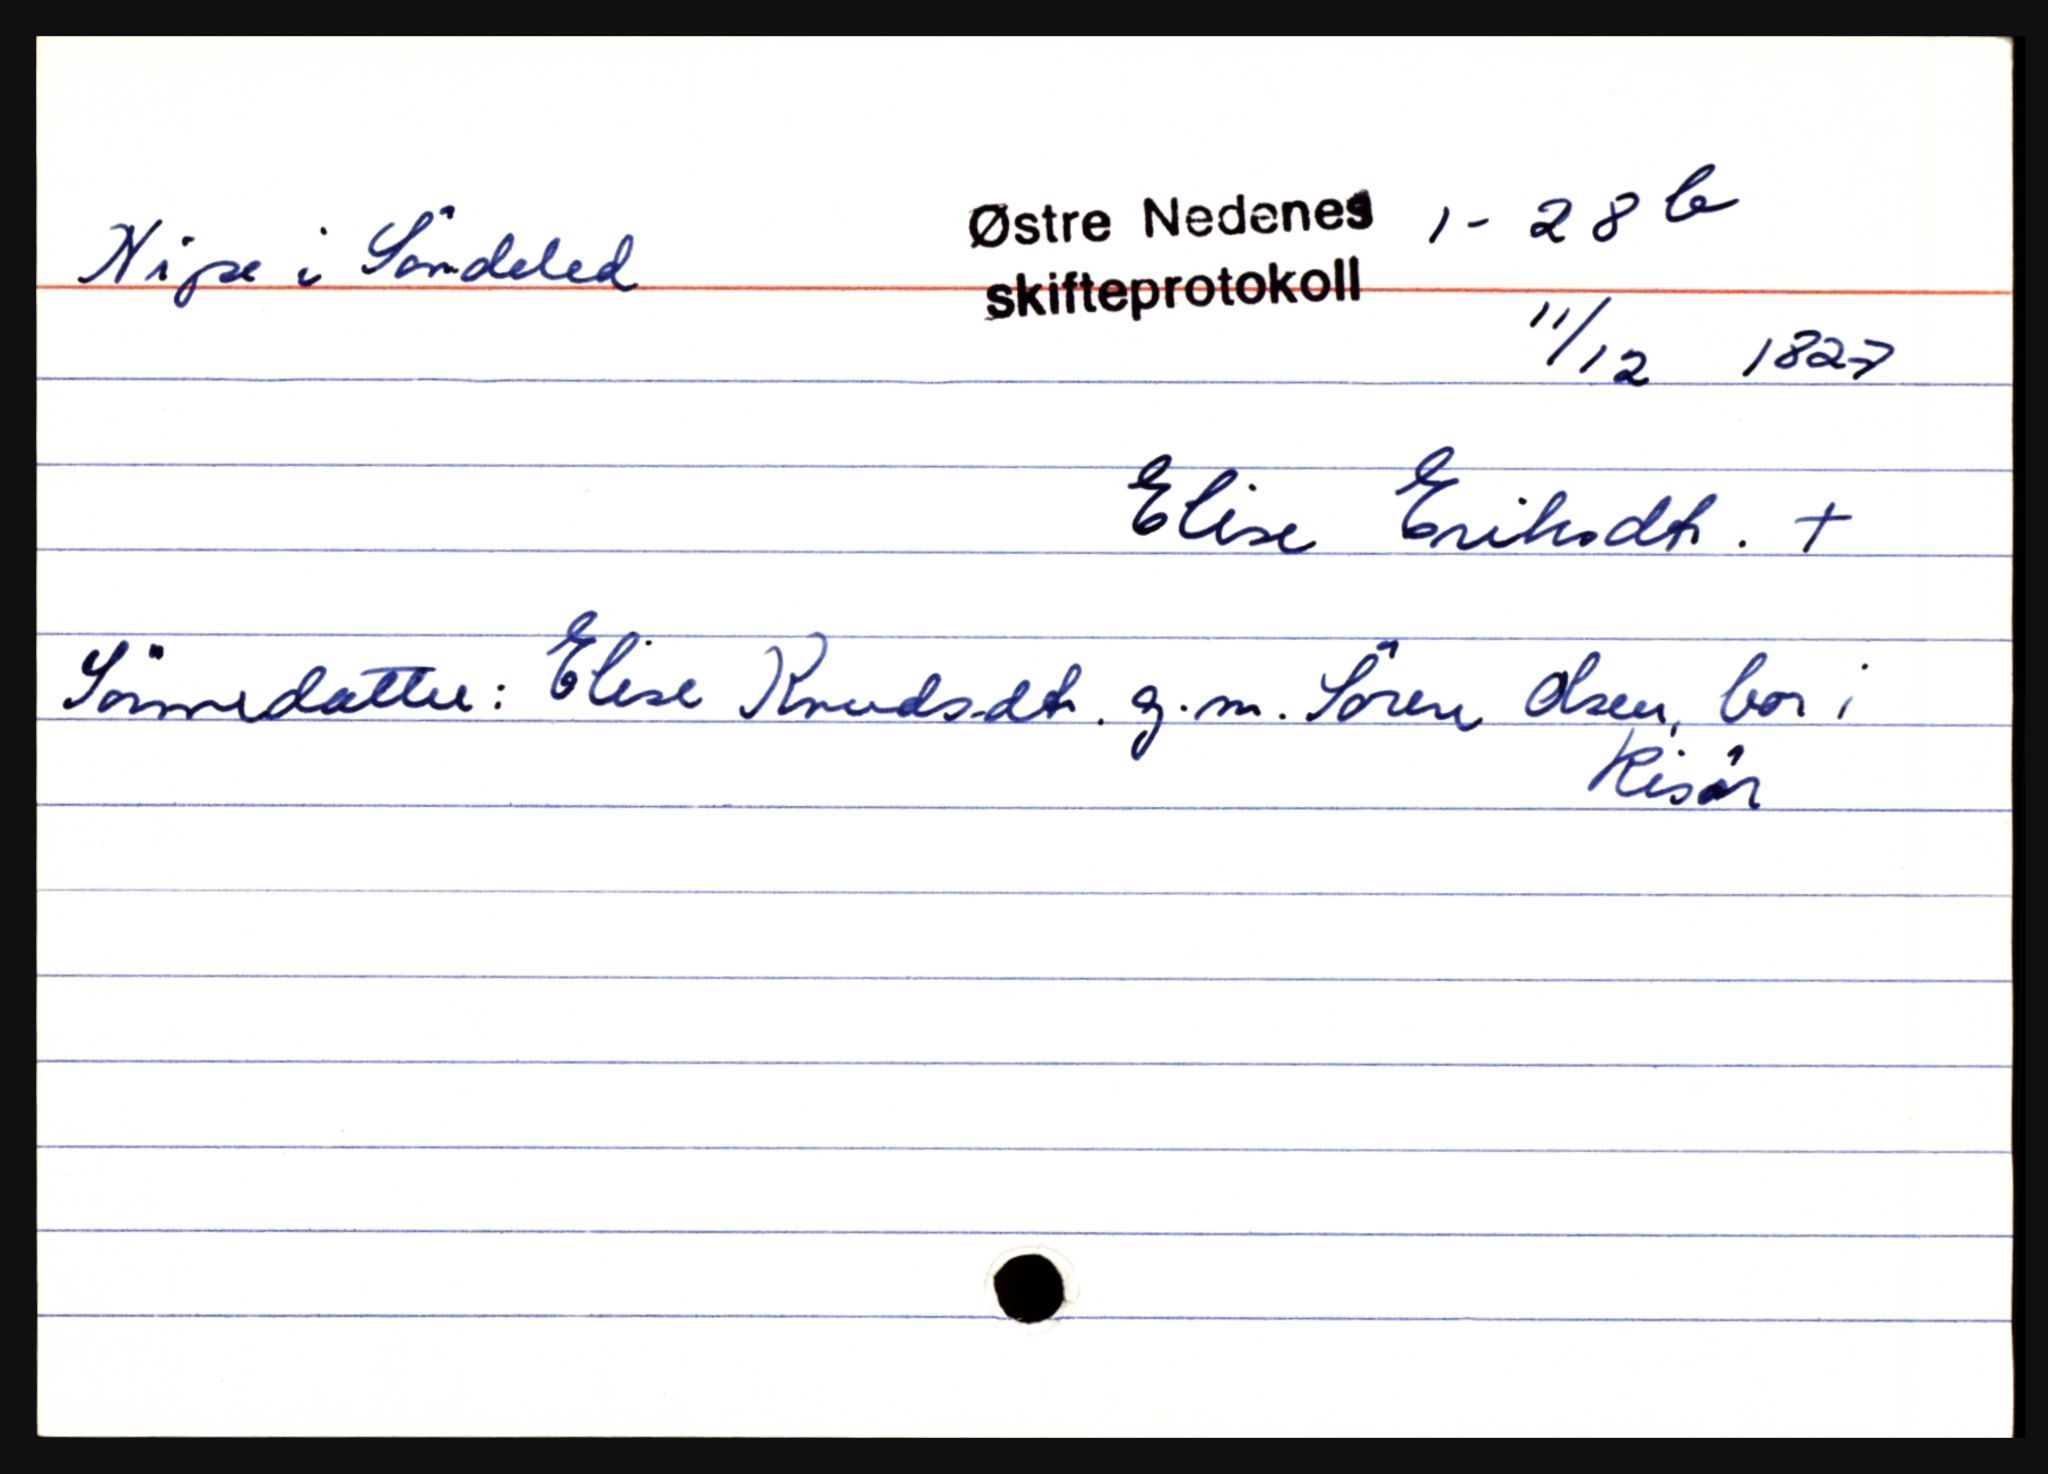 Nipe i Söndeled
Østre Nedenes 1 - 28 b
skifteprotokoll
11/12 1827
Elise Eriksdtr. +
Sönnedatter: Elise Knudsdtr. g.m. Sören Olsen, bor i
Risör